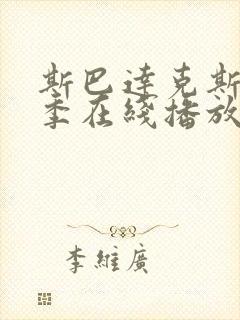 斯巴達克斯
季在綫播放
李維廣